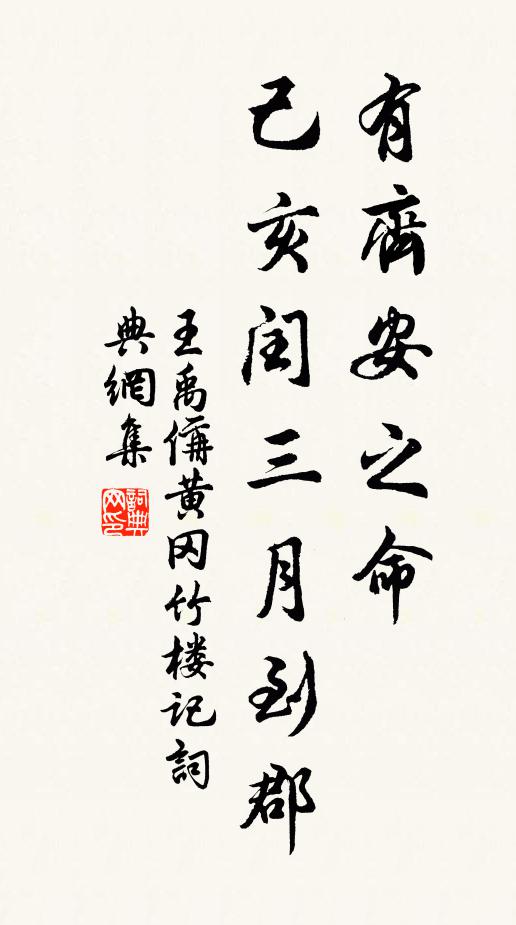 有齊安之命
己亥闰三月到郡
王禹偁黄冈竹楼记詞
典網集
詞典网印